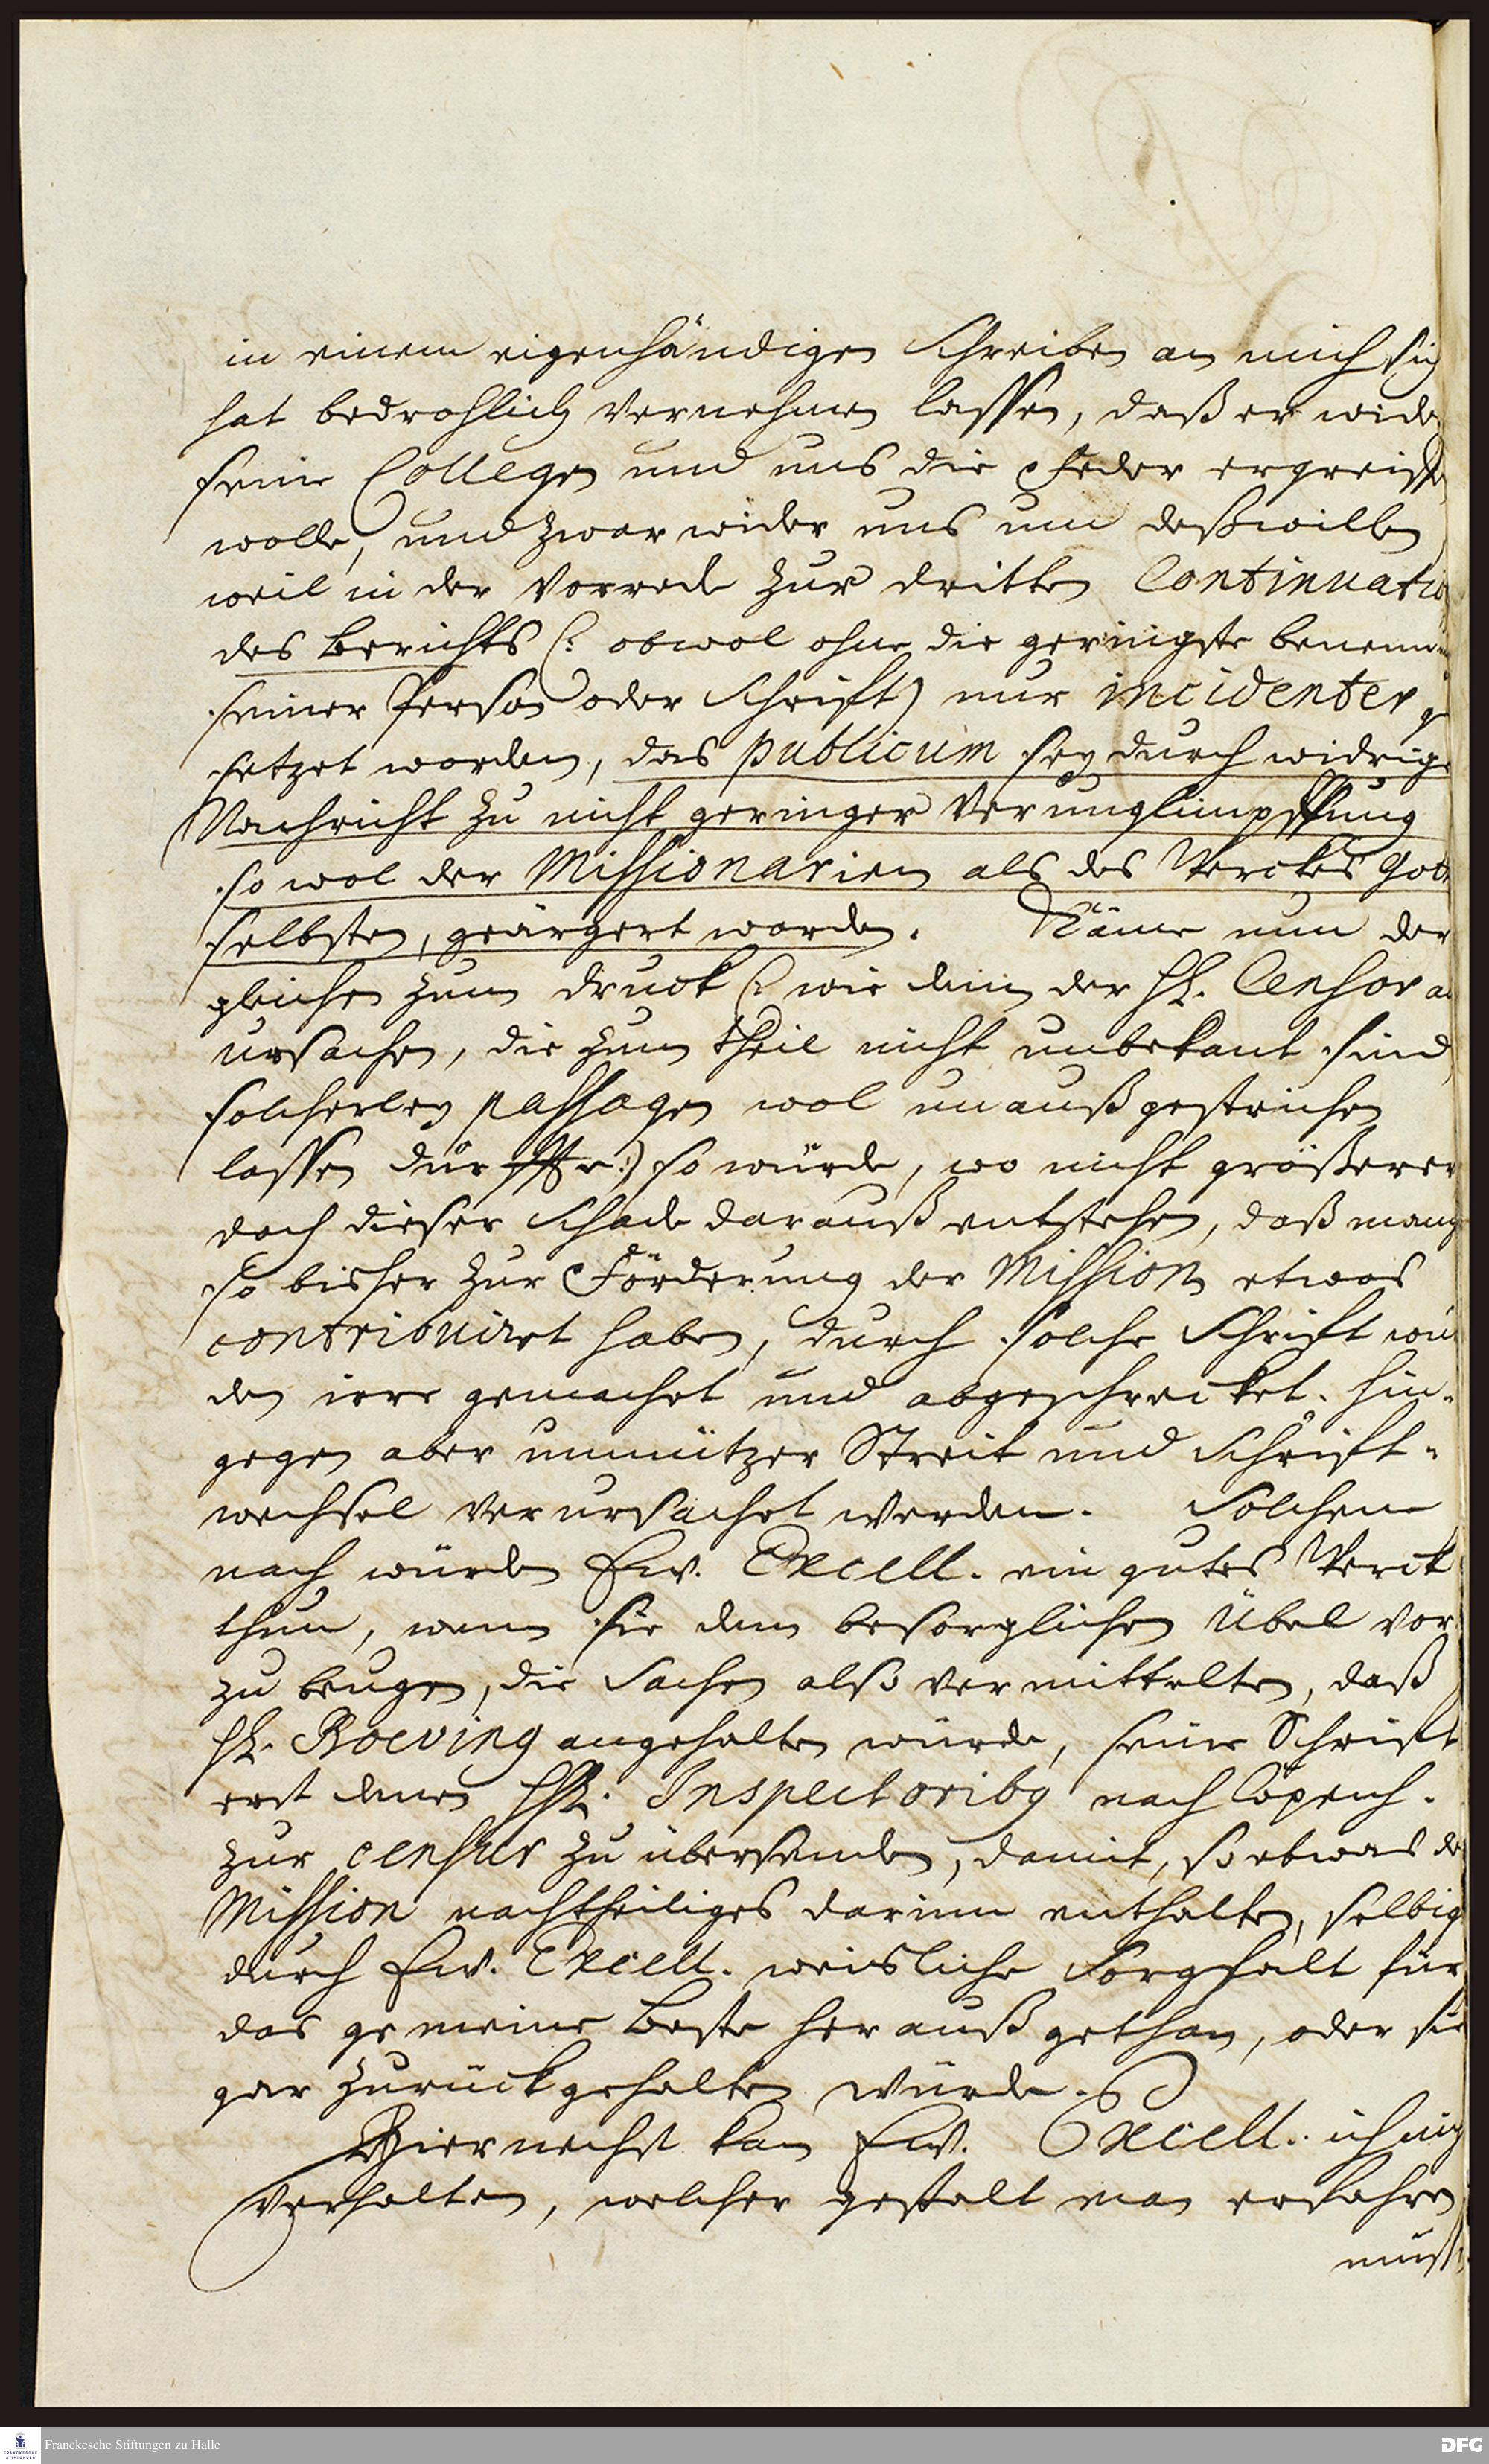 in einem eigenhändigen Schreiben an mich sich
hat bedrohlich vernehmen lassen, daß er wider
seine Collegen und uns die Feder ergreiffen
wolle, und zwar wider uns um deßwillen
weil in der Vorrede zur dritten Continuatio
des Berichts (: obwol ohne die geringste benennung
seiner Person oder Schrifft) nur incidenter ge
setzet worden, das publicum sey durch widrige
Nachricht zu nicht geringer Verunglimpffung
so wol der Missionarien als des Werckes Gottes
selbsten, geärgert worden. Käme nun der
gleichen zum druck (: wie denn der H. Censor aus
ursachen, die zum theil nicht unbekant sind
solcherley passagen wol unaußgestrichen
lassen dürffte:) so würde, wo nicht größerer
doch dieser Schade darauß entstehen, daß manche
so bisher zur Förderung der Mission etwas
contribuiret haben, durch solche Schrifft wür
den irre gemachet und abgeschrecket. hin-
gegen aber unnützer Streit und Schrifft-
wechsel verursachet werden. Solchem
nach würden Ew. Excell. ein gutes Werck
thun, wenn sie dem besorglichen Übel vor
zu beugen, die Sachen also vermittelten, daß
H. Boeving angehalten würde, seine Schrifft
erst denen HH. Inspectoribus nach Copenh.
zur censur zu übersenden, damit, so etwas der
Mission nachtheiliges darinn enthalten, selbiges
durch Ew. Excell. weisliche Sorgfalt für
das gemeine Beste herauß gethan, oder sie
gar zurückgehalten würde.
Hiernechst kan Ew. Excell. ich nicht
verhalten, welcher gestalt man erfahren
müssen
Franckesche Stiftungen zu Halle
DFG